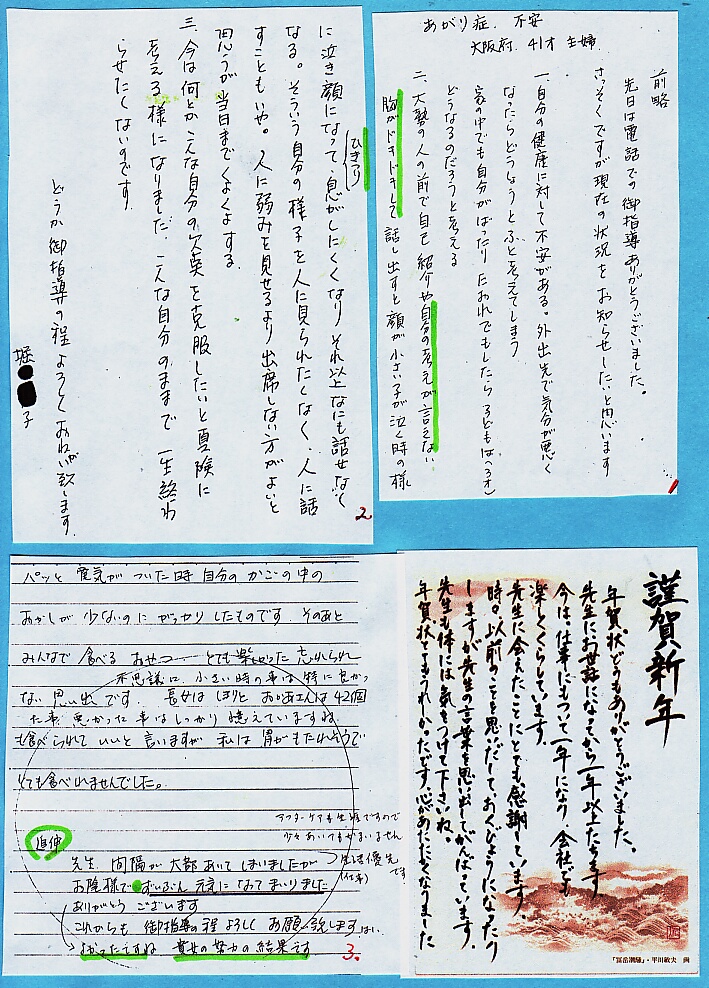 あがり症、不安
大阪府 41才 主婦
前略
先日は電話での御指導ありがとうございました。
さっそくですが現在の状況をお知らせしたいと思います
一、自分の健康に対して不安がある。外出先で気分が悪く
なったらどうしようとふと考えてしまう
家の中でも自分がばったりたおれでもしたら子どもは(3才)
どうなるのだろうと考える
二、大勢の人の前で自己紹介や自分の考えが言えない
胸がドキドキして話し出すと顔が小さい子が泣く時の様
1
に泣き顔になって、息がしにくくなりそれ以上なにも話せなく
ひきつり
なる。そういう自分の様子を人に見られたくなく、人に話
すこともいや。人に弱みを見せるより出席しない方がよいと
思うが当日までくよくよする。
三、今は何とかこんな自分の欠点を克服したいと真険に
考える様になりました。こんな自分のままで一生終わ
らせたくないのです。
どうか御指導の程よろしくおねがい致します。
堀 子
2
パッと電気がついた時自分のかごの中の
おかしが少ないのにがっかりしたものです。そのあと
みんなで食べるおやつ とても楽しかった忘れられ
不思議に、小さい時の事は特に良かっ
ない思い出です。長女はほりとお母さんは42個
た事、悪かった事はしっかり憶えていますね
も食べられていいと言いますが私は胃がもたれそうで
とても食べれませんでした。
アフターケアも生涯ですので
少々あいてもかまいません
追伸
先生 間隔が大部あいてしまいましたが
生活優先
(仕事)
です
お陰様でずいぶん元気になってまいりました
ありがとうございます
これからも御指導の程よろしくお願い致します
はい、
よかったですね 貴女の努力の結果です
3.
謹賀新年
年賀状どうもありがとうございました。
先生にお世話になってから一年以上たちます
今は、仕事にもついて一年になり、会社でも
楽しくくらしています。
先生に会えたことにとても感謝しています。
時々以前のことを思いだして、おくびょうになったり
しますが先生の言葉を思い出してがんばっています。
先生も体には気をつけて下さいね。
年賀状とてもうれしかったです。心があたたかくなりました
「冨岳潮騒」・平川敏夫 画